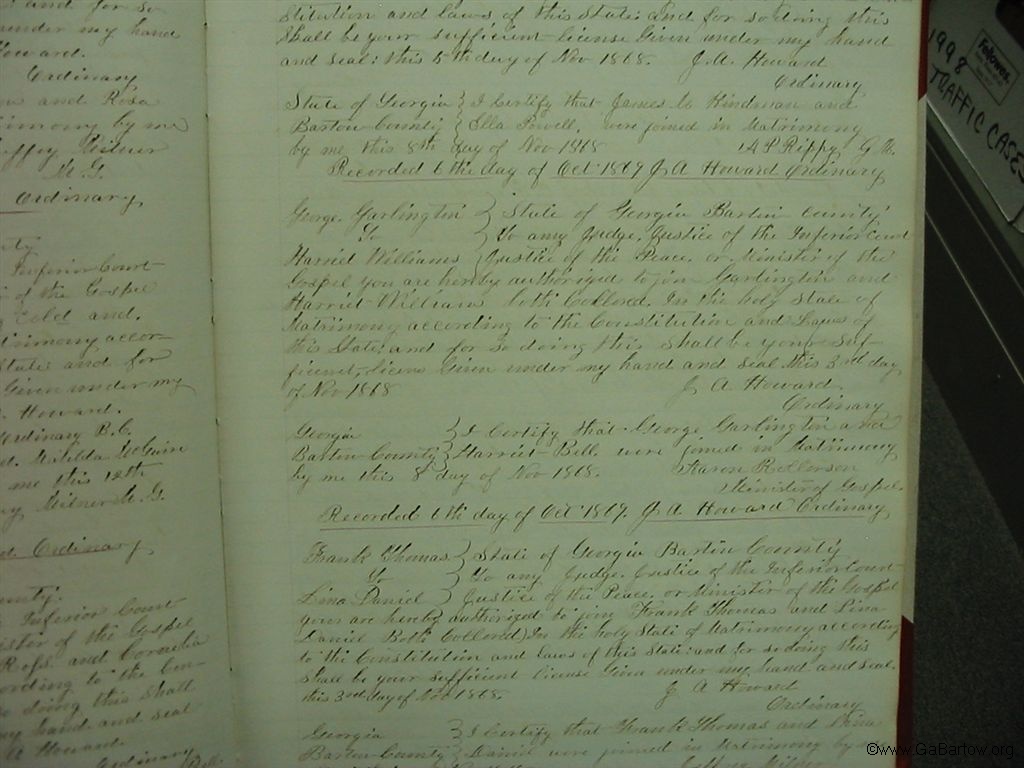 and for so
under my hand
Howard.
Ordinary
and Rosa
by me
Milner
M. G.
Ordinary
Inferior Court
of the Gospel
cold and.
accor-
State and for
Given under my
Howard.
Ordinary B. C.
Matilda McGuire
me this 12th
Milner M. G.
Ordinary
Inferior Court
of the Gospel
and Cornelia
to the Con-
doing this Shall
my hand and seal
Howard.
Ordinary
stitution and laws of this State: And for so doing this
Shall be your sufficient License Given under my hand
and seal: this 5th day of Nov 1868. J. A. Howard
Ordinary
State of Georgia } I Certify that James C Hindman and
Bartow County } Ella Powell, were joined in Matrimony
by me this 8th day of Nov 1868 Rippy
Recorded 6th day of Oct 1869 J A Howard Ordinary
George Garlington } State of Georgia Bartow County
To } To any Judge, Justice of the Inferior Court
Harriet Williams } Justice of the Peace, or Minister of the
Gospel you are hereby authorized to join Garlington and
Harriet Williams both Collored. In the holy State of
Matrimony according to the Constitution and Laws of
this State; and for so doing this Shall be your Suf-
ficient, Given under my hand and seal this 3rd day
of Nov 1868 J A Howard.
Ordinary
Georgia } I Certify that George Garlington and
Bartow County } Harriet Bell, were joined in Matrimony
by me this 8 day of Nov 1868. Aaron Rollerson
Minister of Gospel.
Recorded 6th day of Oct 1869. J A Howard Ordinary
Frank Thomas } State of Georgia Bartow County
To } To any Judge. Justice of the Inferior Court
Lina Daniel } Justice of the Peace, or Minister of the Gospel
your are hereby authorized to join Frank Thomas and Lina
Daniel Both Collored) In the holy State of Matrimony according
to the Constitution and laws of this State: and for so doing this
Shall be your Sufficient License Given under my hand and seal.
this 3rd day of Nov 1868. J A Howard
Ordinary
Georgia } I Certify that Frank Thomas and Lina
Bartow County } Daniel were joined in Matrimony by
Fellowes
1998
TRAFFIC CASES
©www.GaBartow.org